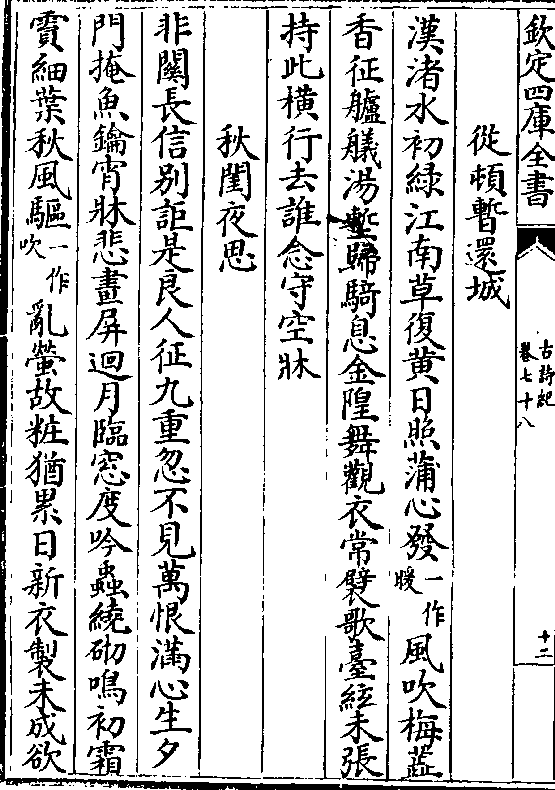 欽定四庫全書
古詩紀
卷七十八
十二
從頓暫還城
漢渚水初綠江南草復黄日照蒲心發一作暖風吹梅蘂
香征艫艤湯塹歸騎息金隍舞觀衣常襞歌臺絃未張
持此橫行去誰念守空牀
秋閨夜思
非關長信别詎是良人征九重忽不見萬恨滿心生夕
門掩魚鑰宵牀悲畫屏迴月臨窓度吟蟲繞砌鳴初霜
賈細葉秋風驅一作吹亂螢故粧猶累日新衣製未成欲